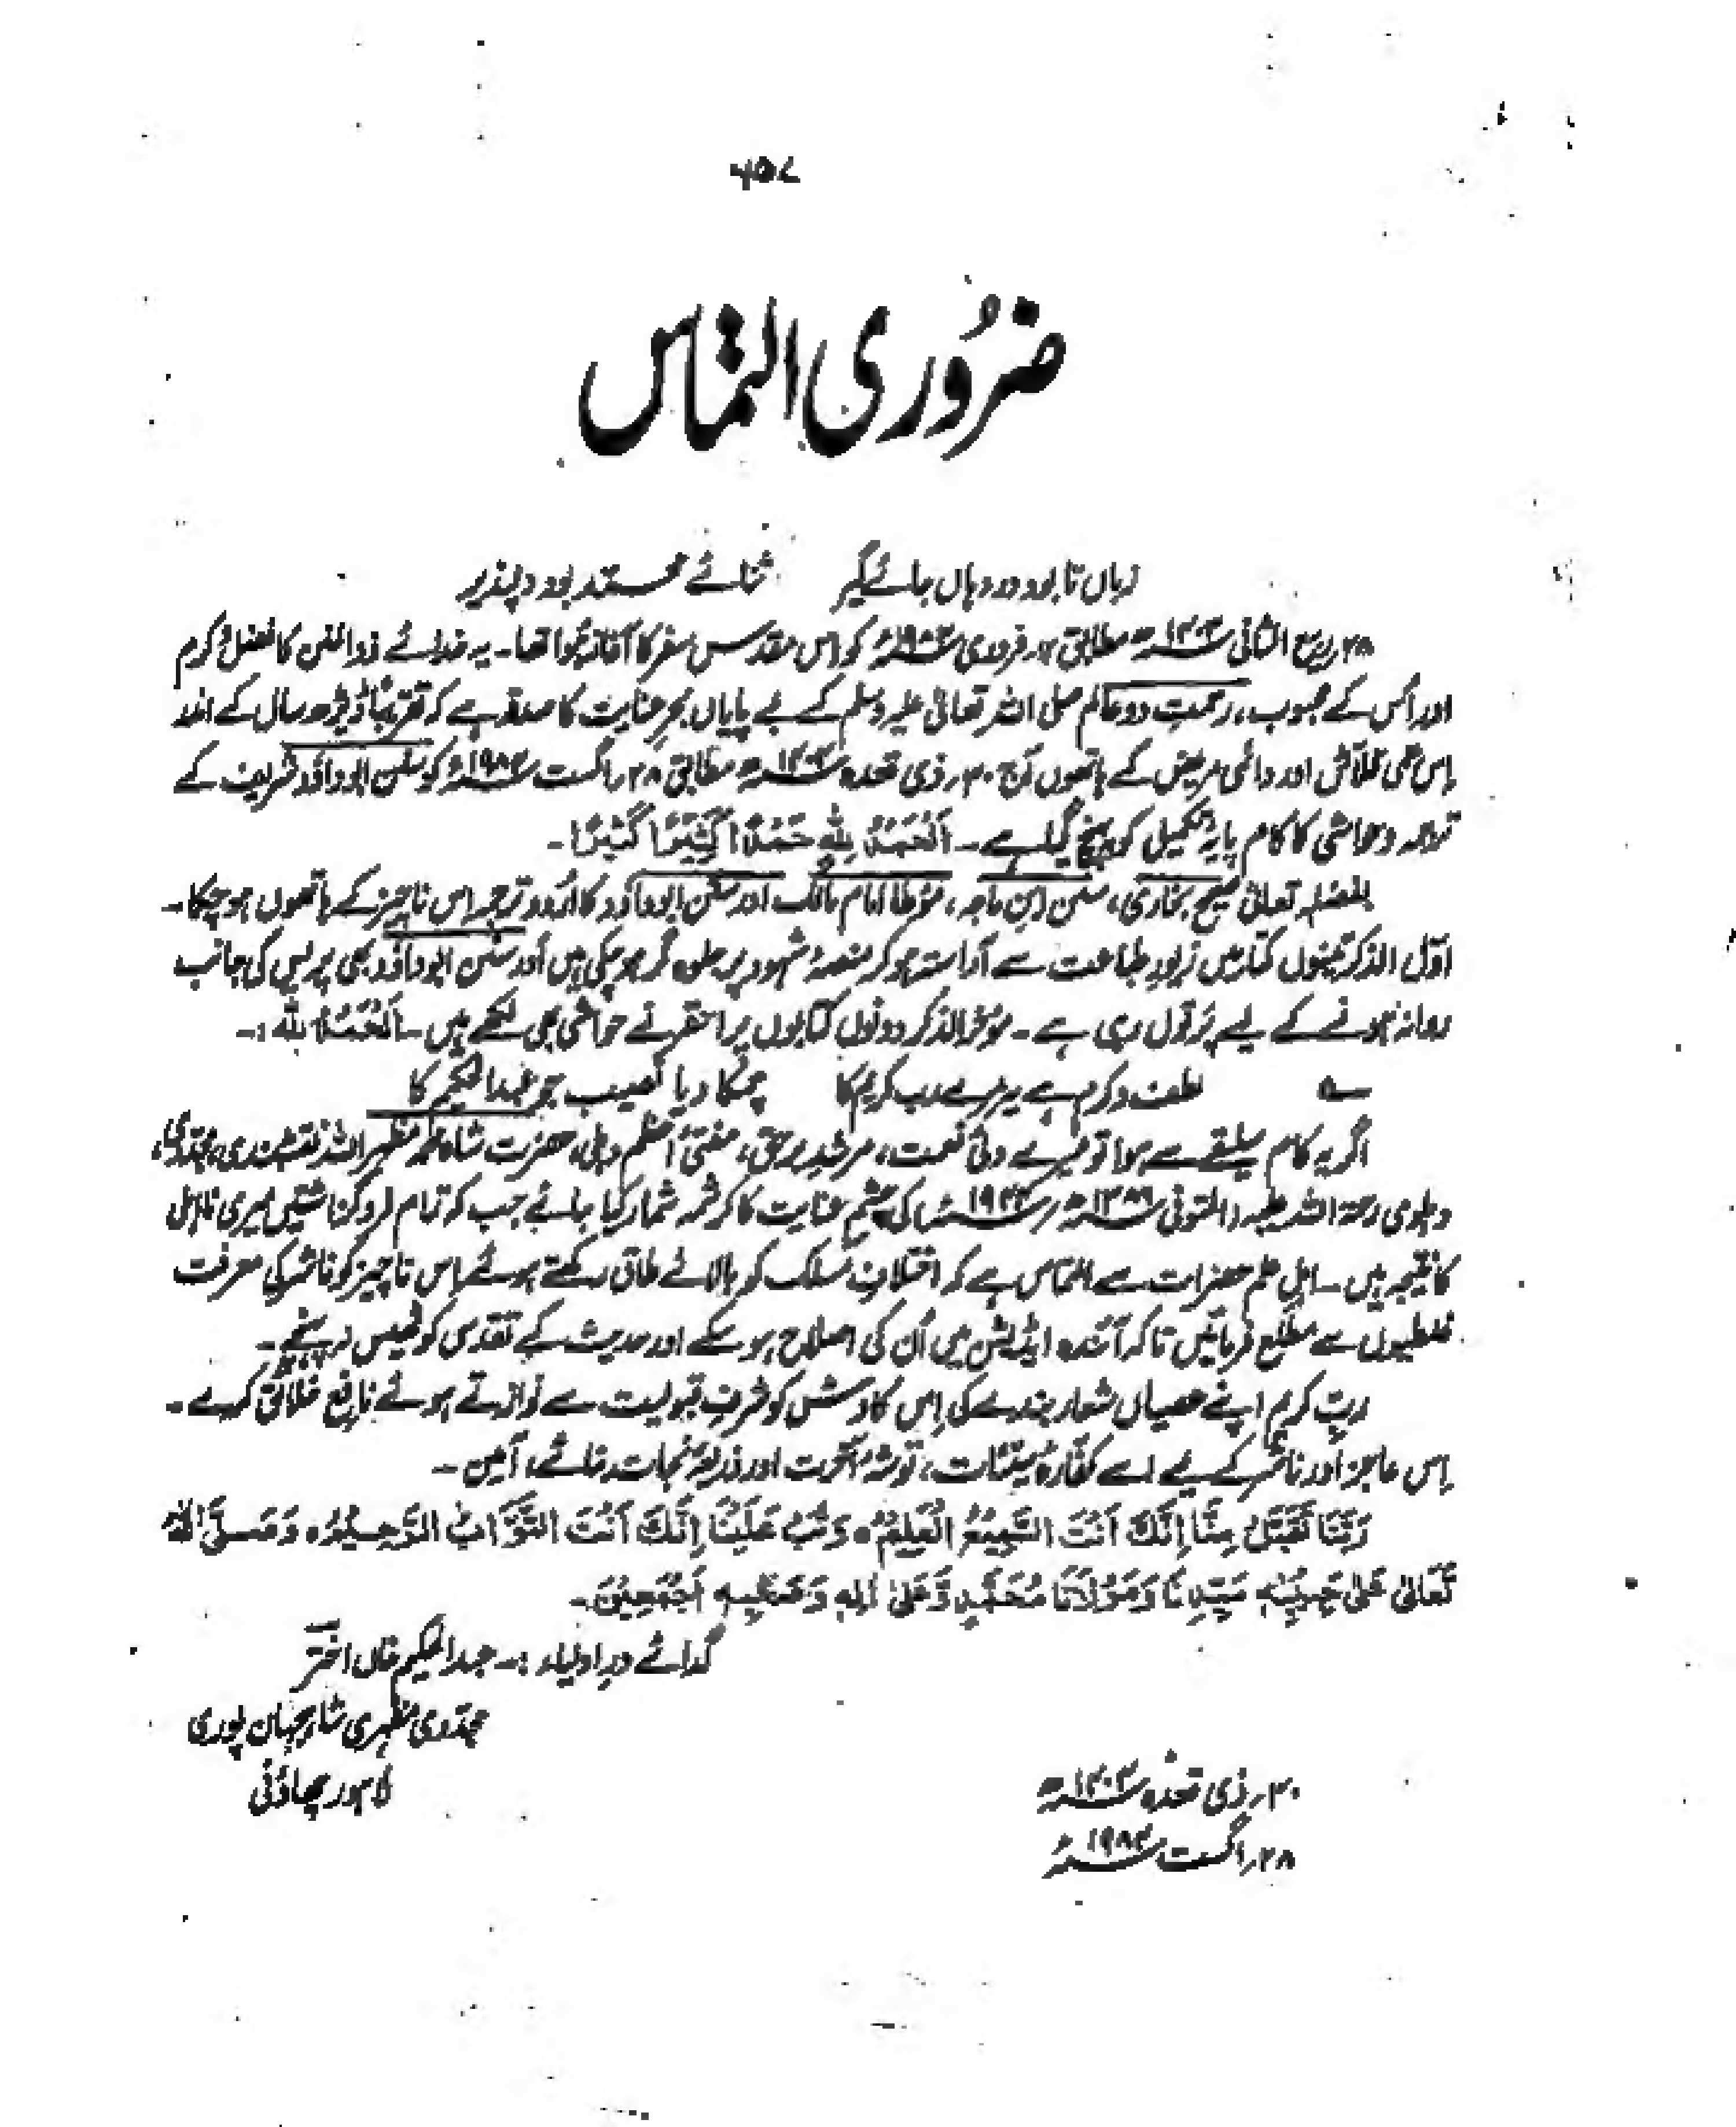 ۶۵۷
ضروری التماس
زباں تا بود در دہاں جائے گیر ثنائے محمد بود دلپذیر
۲۸؍ ربیع الثانی مطابق فروری کو اس مقدس سفر کا آغاز ہوا تھا۔ یہ خدائے ذوالمنن کا فضل و کرم
اور اُس کے محبوب، رحمتِ دو عالم صلی اللہ تعالیٰ علیہ وسلم کے بے پایاں بحرِ عنایت کا صدقہ ہے کہ تقریباً ڈیڑھ سال کے اندر
اِس علمی قلاش اور دائمی مریض کے ہاتھوں آج ۳۰؍ ذی قعدہ مطابق ۲۸؍ اگست ۱۹۸۴ء کو سنن ابوداؤد شریف کے
ترجمہ و حواشی کا کام پایۂ تکمیل کو پہنچ گیا ہے۔ اَلْحَمْدُ لِلّٰهِ حَمْدًا كَثِيْرًا كَثِيْرًا۔
بفضلہٖ تعالیٰ صحیح بخاری، سنن ابنِ ماجہ، مؤطا امام مالک اور سنن ابوداؤد کا اُردو ترجمہ اس ناچیز کے ہاتھوں ہو چکا۔
اوّل الذکر تینوں کتابیں زیورِ طباعت سے آراستہ ہو کر منصۂ شہود پر جلوہ گر ہو چکی ہیں اور سنن ابوداؤد بھی پریس کی جانب
روانہ ہونے کے لیے پَر تول رہی ہے۔ مؤخر الذکر دونوں کتابوں پر احقر نے حواشی بھی لکھے ہیں۔ اَلْحَمْدُ لِلّٰه :۔
لطف و کرم ہے یہ مرے رب کریم کا چمکا دیا نصیب جو عبدالحکیم کا
اگر یہ کام سلیقے سے ہوا تو میرے ولیٔ نعمت، مرشدِ برحق، مفتیٔ اعظم دہلی، حضرت شاہ محمد مظہر اللہ نقشبندی مجددی،
دہلوی رحمۃ اللہ علیہ (المتوفی) کی چشمِ عنایت کا کرشمہ شمار کیا جائے جب کہ تمام فروگذاشتیں میری نااہلی
کا نتیجہ ہیں۔ اہلِ علم حضرات سے التماس ہے کہ اختلافِ مسلک کو بالائے طاق رکھتے ہوئے اِس ناچیز کو ناشر کی معرفت
غلطیوں سے مطلع فرمائیں تاکہ آئندہ ایڈیشن میں اُن کی اصلاح ہو سکے اور حدیث کے تقدس کو ٹھیس نہ پہنچے۔
ربِ کریم اپنے عصیاں شعار بندے کی اِس کاوش کو شرفِ قبولیت سے نوازتے ہوئے نافعِ خلائق کرے۔
اِس عاجز اور ناشر کے لیے اسے کفارۂ سیئات، توشۂ آخرت اور ذریعۂ نجات بنائے، آمین۔
رَبَّنَا تَقَبَّلْ مِنَّا اِنَّكَ اَنْتَ السَّمِيْعُ الْعَلِيْمُ ہ وَتُبْ عَلَيْنَا اِنَّكَ اَنْتَ التَّوَّابُ الرَّحِيْمُ ہ وَصَلَّى اللهُ
تَعَالٰى عَلٰى حَبِيْبِهٖ سَيِّدِنَا وَمَوْلَانَا مُحَمَّدٍ وَّعَلٰى اٰلِهٖ وَصَحْبِهٖ اَجْمَعِيْنَ۔
گدائے درِ اولیاء :۔ عبدالحکیم خاں اختر
مجددی مظہری شاہجہان پوری
لاہور چھاؤنی
۳۰؍ ذی قعدہ
۲۸؍ اگست ۱۹۸۴ء